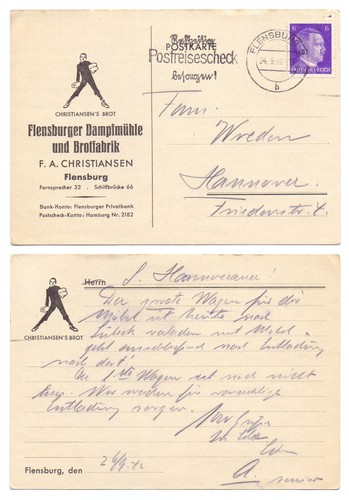 POSTKARTE
Rechtzeitig
Postreisescheck
besorgen!
FLENSBURG
24.9.42
b
6
DEUTSCHES REICH
CHRISTIANSEN'S BROT
Flensburger Dampfmühle
und Brotfabrik
F. A. CHRISTIANSEN
Flensburg
Fernsprecher 33 . Schiffbrücke 66
Bank-Konto: Flensburger Privatbank
Postscheck-Konto: Hamburg Nr. 2182
Fam.
Wreden
Hannover
Friedenstr. 4
CHRISTIANSEN'S BROT
Herrn
L. Hannoveraner!
Der zweite Wagen für die
Möbel ist heute nach
Lübeck verladen
geht anschließend nach Entladung
nach dort!
Der 1ste Wagen ist noch nicht
Wir werden für
Entladung sorgen.
Flensburg, den
24/9.42
A. senior